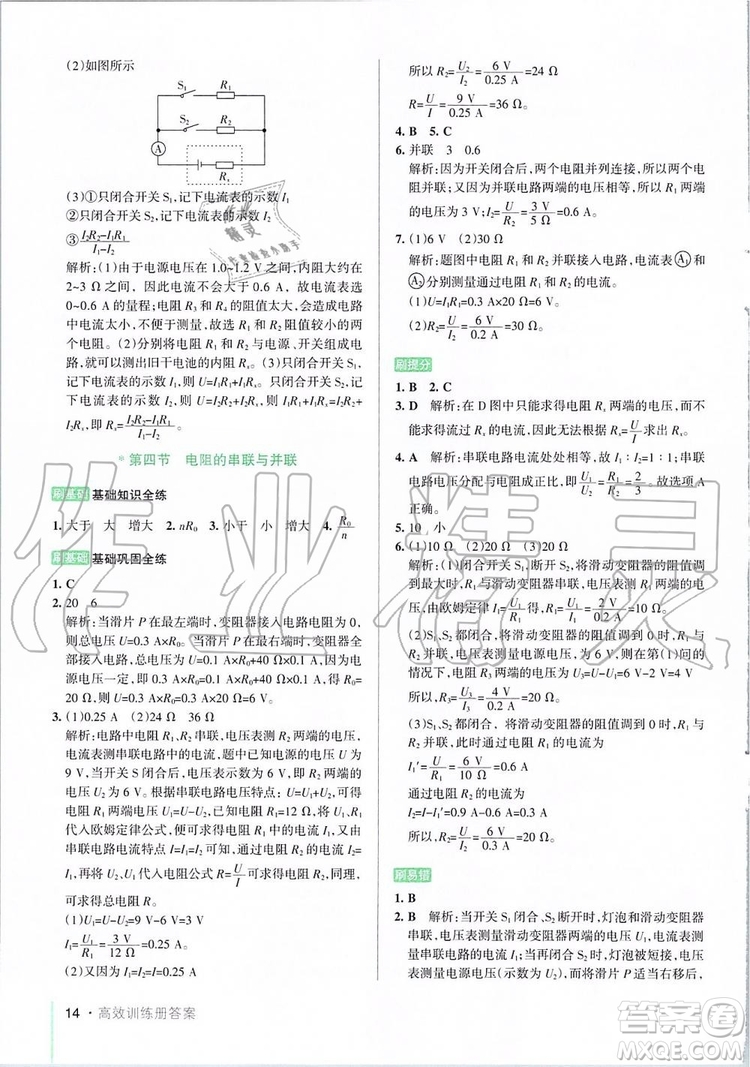 (2)如图所示
S₁ R₁
S₂ R₂
A
Rₓ
(3)①只闭合开关 S₁,记下电流表的示数 I₁
②只闭合开关 S₂,记下电流表的示数 I₂
③(I₂R₂-I₁R₁)/(I₁-I₂)
解析:(1)由于电源电压在 1.0~1.2 V 之间,内阻大约在
2~3 Ω 之间,因此电流不会大于 0.6 A,故电流表选
0~0.6 A 的量程;电阻 R₃ 和 R₄ 的阻值太大,会造成电路
中电流太小,不便于测量,故选 R₁ 和 R₂ 进行实验。
(2)将两个电阻 R₁ 和 R₂ 与电源、开关组成电
路,就可以测出旧干电池的内阻。(3)只闭合开关 S₁,
记下电流表的示数 I₁,则 U=I₁R₁+I₁Rₓ。只闭合开关 S₂,
记下电流表的示数 I₂,则 U=I₂R₂+I₂Rₓ=I₁R₁+I₁Rₓ=I₂R₂+
I₂Rₓ,即 Rₓ=(I₂R₂-I₁R₁)/(I₁-I₂)。
*第四节 电阻的串联与并联
刷基础 基础知识全练
1. 大于 大 增大 2. nR₀ 3. 小于 小 增大 4. R₀/n
刷基础 基础巩固全练
1. C
2. 20 6
解析:当滑片 P 在最左端时,变阻器接入电路电阻为 0,
则总电压 U=0.3 A×R₀。当滑片 P 在最右端时,变阻器全部
接入电路,总电压 U=0.1 A×R₀+0.1 A×40 Ω,
电源电压一定,即 0.3 A×R₀=0.1 A×R₀+40 Ω×0.1 A,得
R₀=20 Ω,则 U=0.3 A×R₀=0.3 A×20 Ω=6 V。
3. (1)0.25 A (2)24 Ω 36 Ω
解析:电路中电阻 R₁、R₂ 串联,电压表测 R₂ 两端的电压,
电流表测串联电路中的电流,I₁=I₂=I。已知电源的电压 U 为
9 V,当闭合开关后,电压表示数为 6 V,即 R₂ 两端的电压
为 6 V。根据串联电路电压特点:U=U₁+U₂,可以求得电
阻 R₁ 两端电压 U₁=U-U₂,已知电阻 R₁=12 Ω,将 U₁、R₁
代入欧姆定律公式,就可以求得通过电阻 R₁ 的电流 I₁,又由
串联电路电流特点可知,通过电阻 R₂ 的电流 I₂=
I₁,再将 U₂、I₂ 代入公式 I=U/R 就可以求得电阻 R₂,同理,
可求得总电阻。
(1)U₁=U-U₂=9 V-6 V=3 V
I₁=U₁/R₁=3 V/12 Ω=0.25 A。
(2)又因为 I=I₁=I₂=0.25 A
14 · 高效训练册答案
所以 R₂=U₂/I₂=6 V/0.25 A=24 Ω
R=U/I=9 V/0.25 A=36 Ω。
4. B 5. C
6. 并联 3 0.6
解析:因为开关闭合后,两个电阻并列连接,所以它们
属于并联。又因为并联电路两端的电压相等,所以 R₁ 两端
的电压为 3 V;I₁=U/R₁=3 V/5 Ω=0.6 A。
7. (1)6 V (2)30 Ω
解析:题图中电阻 R₁ 和 R₂ 并联接入电路,电流表 A₁ 和
A₂ 分别测量通过 R₁ 和 R₂ 的电流。
(1)U=I₁R₁=0.3 A×20 Ω=6 V。
(2)R₂=U/I₂=6 V/0.2 A=30 Ω。
刷提分
1. B 2. C
3. D 解析:在 D 图中只能求得电阻 Rₓ 两端的电压,而无
法求得通过 Rₓ 的电流,因此无法根据 R=U/I 求得 Rₓ。
4. A 解析:串联电路电流处处相等,故 1∶1;串联电路
电路电压分配与电阻成正比,即 U₁/U₂=R₁/R₂=2/3。
5. 10 小
6. (1)10 Ω (2)20 Ω (3)20 Ω
解析:(1)闭合开关 S₁,将滑动变阻器的滑片的阻值调
到最大时,电阻 R₁ 和滑动变阻器串联,电压表测 R₁ 的电压,
由欧姆定律 I₁=U₁/R₁ 得,R₁=U₁/I₁=2 V/0.2 A=10 Ω。
(2)S₁、S₂ 都闭合,将滑动变阻器的阻值调到最大时,
电压表测量电源电压,为 6 V。则在第(1)问的
情况下,电压 U₃=U-U₁=6 V-2 V=4 V
所以,R₃=U₃/I₃=4 V/0.2 A=20 Ω。
(3)S₁、S₂ 都闭合,将滑动变阻器的阻值调到为 0,R₁ 与
R₂ 并联,此时通过电阻 R₁ 的电流为
I₁′=U/R₁=6 V/10 Ω=0.6 A
则通过电阻 R₂ 的电流为
I₂=I-I₁′=0.9 A-0.6 A=0.3 A
所以,R₂=U/I₂=6 V/0.3 A=20 Ω。
刷易错
1. B
2. B 解析:当开关 S₁ 闭合、S₂ 断开时,灯泡和滑动变阻器
串联,电压表测量滑动变阻器两端的电压,设电源电
压为 U。当两开关都闭合时,灯泡被短接,电压表测量
电源电压(示数为 U)。而将滑片 P 适当右移后,
作业精灵
答案圈
MXQE.COM